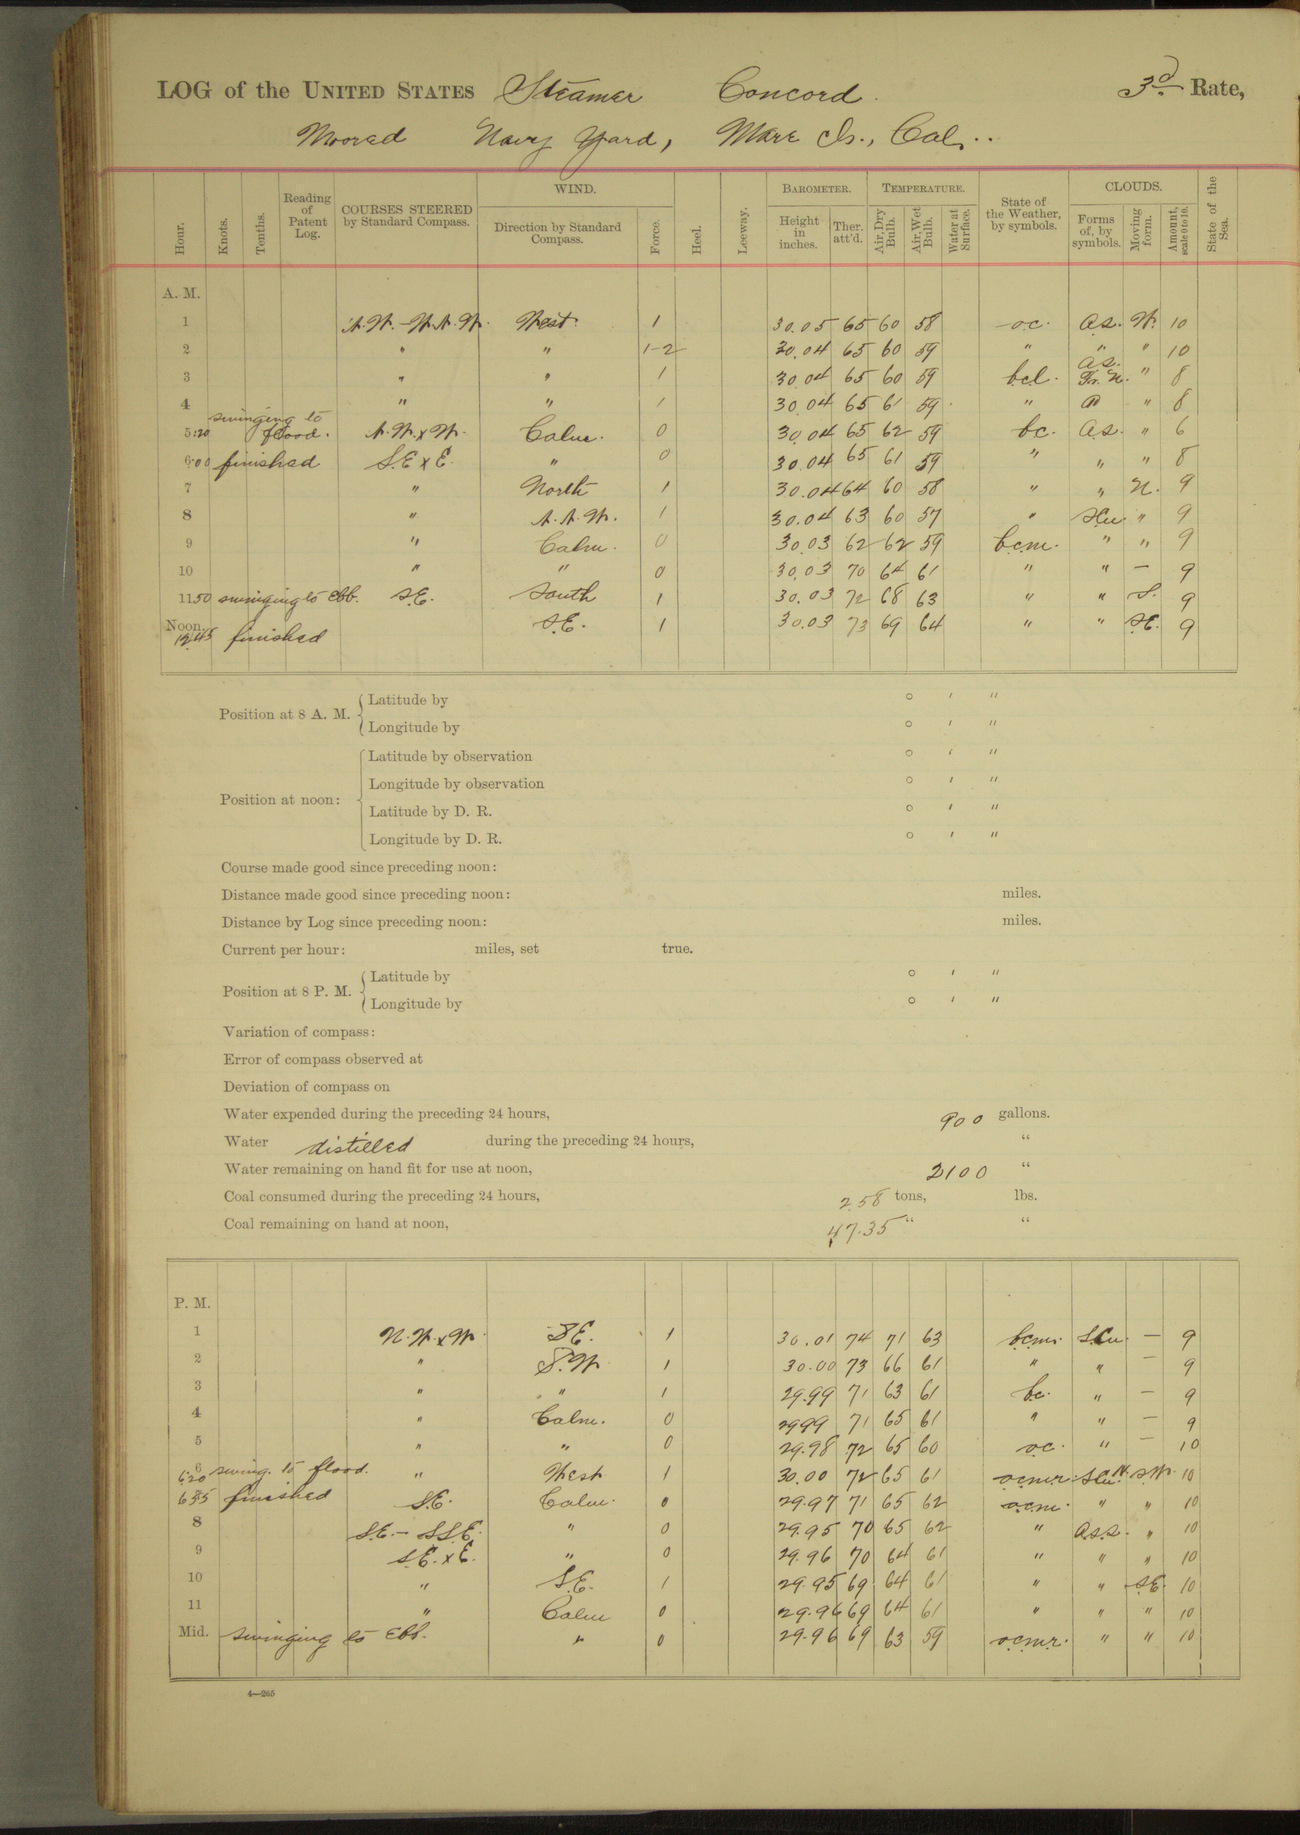 LOG of the UNITED STATES Steamer Concord 3d Rate,
Moored Navy Yard, Mare Is., Cal.
Hour. Knots. Tenths. Reading of Patent Log. COURSES STEERED by Standard Compass. WIND. Direction by Standard Compass. Force. Heel. Leeway. BAROMETER. Height in inches. Ther. att'd. TEMPERATURE. Air, Dry Bulb. Air, Wet Bulb. Water at Surface. State of the Weather, by symbols. CLOUDS. Forms of, by symbols. Moving form. Amount, scale 0 to 10. State of the Sea.
A. M.
1 N.W.-W.N.W. West 1 30.05 65 60 58 o.c. A.S. W. 10
2 " " 1-2 30.04 65 60 59 " " " 10
3 " " 1 30.04 65 60 59 bcl. A.S. Fr. N. " 8
4 " " 1 30.04 65 61 59 " " " 8
5:20 swinging to flood. N.W.xW. Calm. 0 30.04 65 62 59 bc. A.S. " 6
6:00 finished S.E x E. " 0 30.04 65 61 59 " " " 8
7 " North 1 30.04 64 60 58 " " N. 9
8 " N.N.W. 1 30.04 63 60 57 " S.Cu. " 9
9 " Calm. 0 30.03 62 62 59 b.c.m. " " 9
10 " " 0 30.03 70 64 61 " " — 9
11 50 swinging to ebb. S.E. South 1 30.03 72 68 63 " " S. 9
Noon. 12 45 finished S.E. 1 30.03 73 69 64 " " S.E. 9
Position at 8 A. M. Latitude by ° ′ ″
Longitude by ° ′ ″
Position at noon: Latitude by observation ° ′ ″
Longitude by observation ° ′ ″
Latitude by D. R. ° ′ ″
Longitude by D. R. ° ′ ″
Course made good since preceding noon:
Distance made good since preceding noon: miles.
Distance by Log since preceding noon: miles.
Current per hour: miles, set true.
Position at 8 P. M. Latitude by ° ′ ″
Longitude by ° ′ ″
Variation of compass:
Error of compass observed at
Deviation of compass on
Water expended during the preceding 24 hours, 900 gallons.
Water distilled during the preceding 24 hours, "
Water remaining on hand fit for use at noon, 2100 "
Coal consumed during the preceding 24 hours, 2.58 tons, lbs.
Coal remaining on hand at noon, 47.35 " "
P. M.
1 N.W.xW. S.E. 1 30.01 74 71 63 b.c.m. S.Cu. — 9
2 " S.W 1 30.00 73 66 61 " " — 9
3 " " 1 29.99 71 63 61 bc. " — 9
4 " Calm. 0 29.99 71 65 61 " " — 9
5 " " 0 29.98 72 65 60 o.c. " — 10
6 6:20 swing. to flood. " West 1 30.00 72 65 61 o.c.m.r. S.Cu. N. S.W. 10
6 35 finished S.E. Calm. 0 29.97 71 65 62 o.c.m. " " 10
8 S.E.- S.S.E. " 0 29.95 70 65 62 " A.S.S. " 10
9 S.E. x E. " 0 29.96 70 64 61 " " " 10
10 " S.E. 1 29.95 69 64 61 " " S.E. 10
11 " Calm 0 29.96 69 64 61 " " " 10
Mid. swinging to ebb. " 0 29.96 69 63 59 o.c.m.r. " " 10
4—265